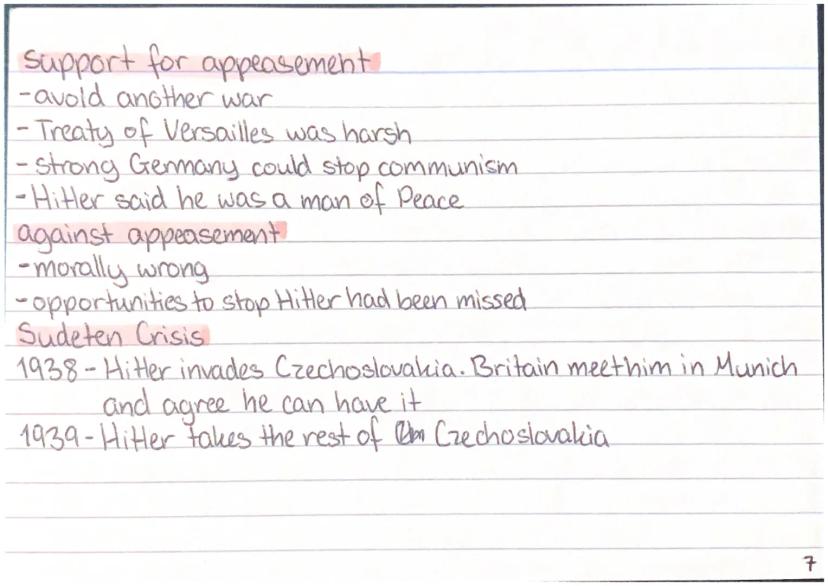 support for appeasement
-avoid another war
- Treaty of Versailles was harsh
- strong Germany could stop communism
-Hitler said he was a man of Peace
against appeasement
-morally wrong
-opportunities to stop Hitler had been missed
Sudeten Crisis
1938-Hitler invades Czechoslovakia. Britain meet him in Munich
and agree he can have it
1939-Hitler takes the rest of Czechoslovakia
7